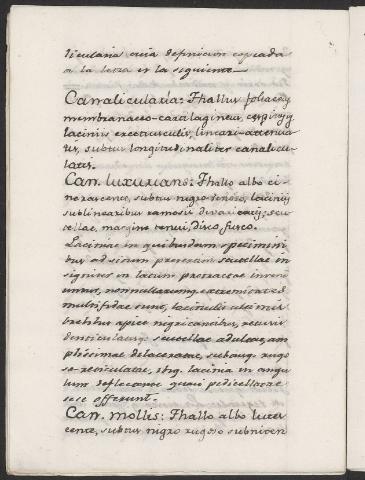 licularia cuia definicion copiada
a la letra es la siguiente
Canalicularia: Thallus foliaceus
membranaceo-cartilagineus, cæspitosus
laciniis erectiusculis, lineari-attenua
tis, subtus longitudinaliter canalicu-
latis.
Can. luxurians: Thallo albo ci-
nerascente, subtus nigro venoso, laciniis
sublinearibus ramosis divaricatis; scu-
tellæ, margine tenui, disco fusco.
Laciniæ in quibusdam specimini
bus ad situm præsertim scutellæ in
signiter in latum protractæ inveni
untur, nonnullarumq. extremitates
multifidæ sunt, lacinulis ultimis
brevibus apice nigricantibus, recurvis
denticulatisq. scutellæ adultæ, am
plissimæ delaceratæ, subtusq. rugo
so-reticulatæ, ibiq. lacinia in angu
lum reflectente quasi pedicellatæ
se se offerunt.
Can. mollis: Thallo albo lutes
cente, subtus nigro rugoso subniten